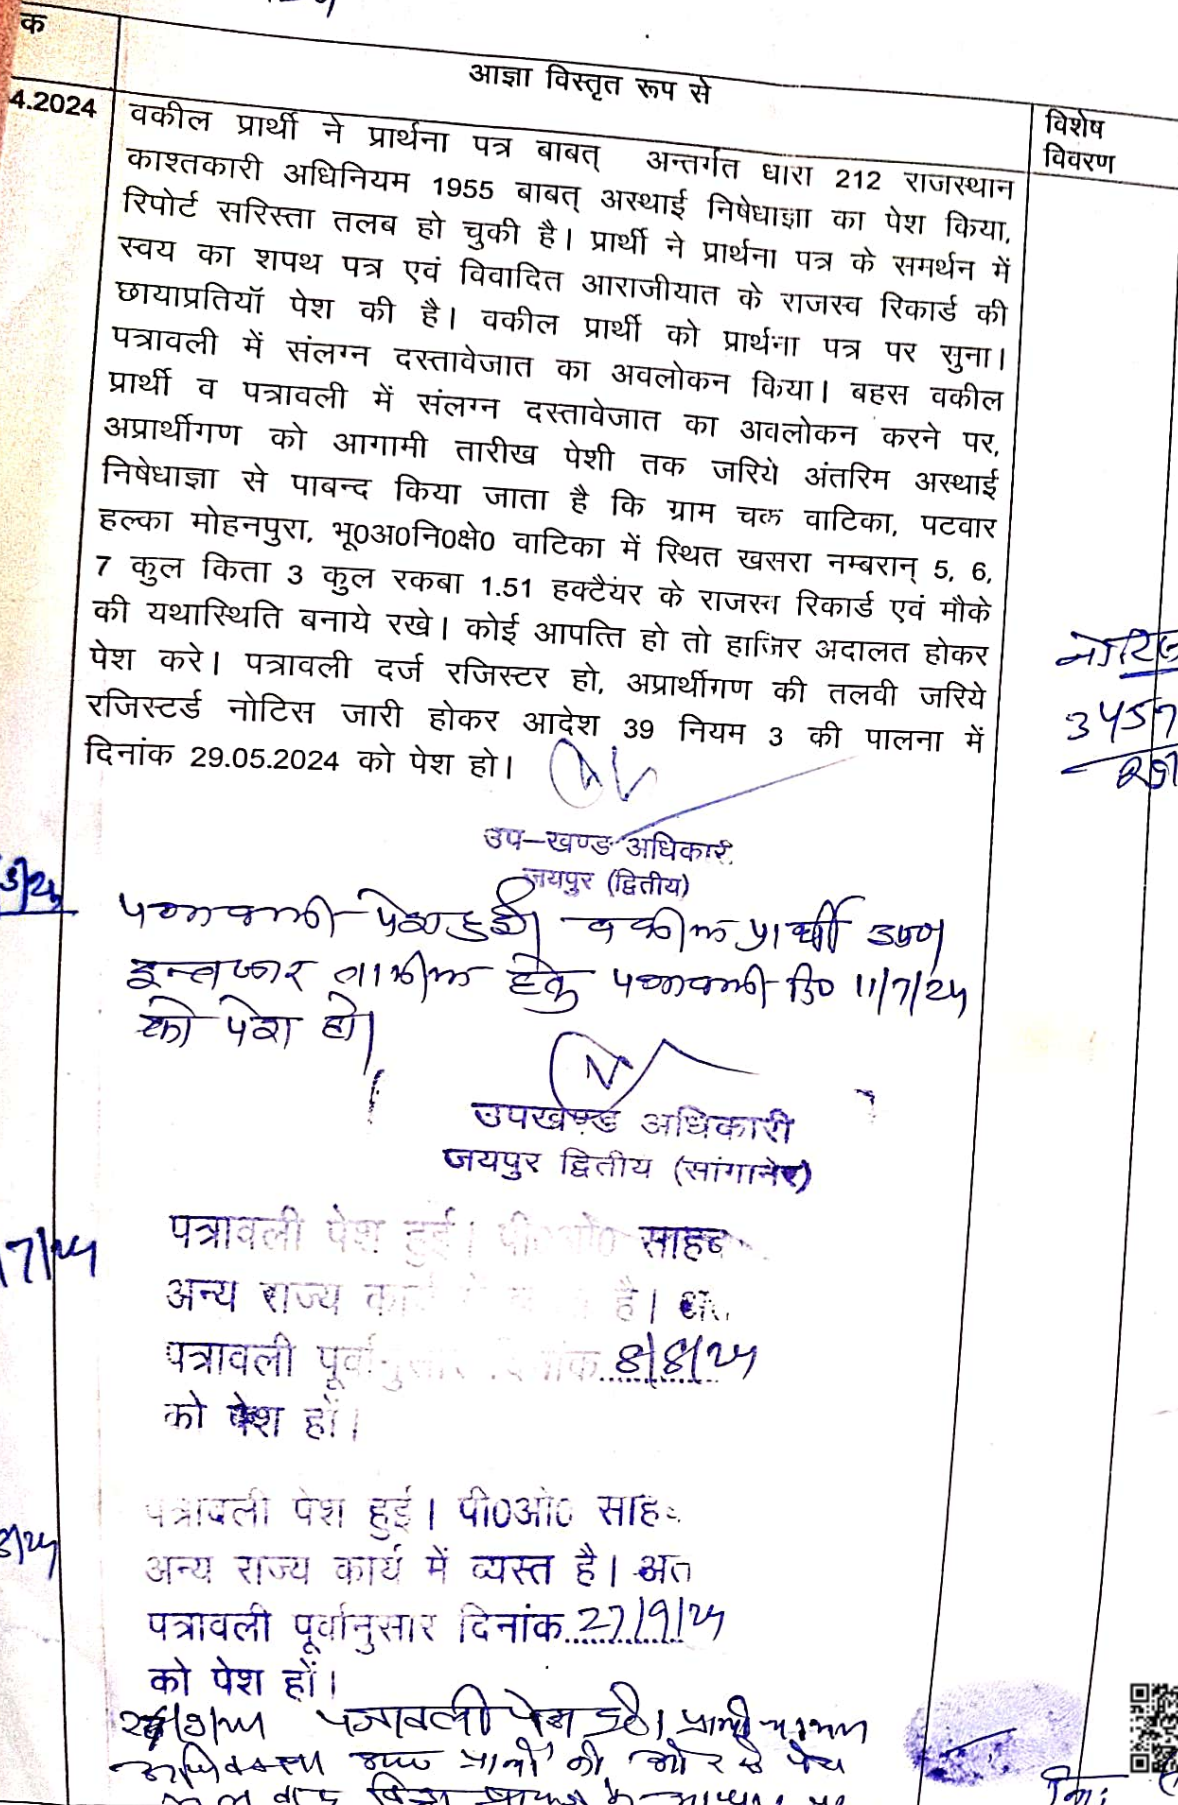 क
आज्ञा विस्तृत रूप से
विशेष
विवरण
4.2024
वकील प्रार्थी ने प्रार्थना पत्र बाबत् अन्तर्गत धारा 212 राजस्थान
काश्तकारी अधिनियम 1955 बाबत् अस्थाई निषेधाज्ञा का पेश किया,
रिपोर्ट सरिस्ता तलब हो चुकी है। प्रार्थी ने प्रार्थना पत्र के समर्थन में
स्वय का शपथ पत्र एवं विवादित आराजीयात के राजस्व रिकार्ड की
छायाप्रतियॉ पेश की है। वकील प्रार्थी को प्रार्थना पत्र पर सुना।
पत्रावली में संलग्न दस्तावेजात का अवलोकन किया। बहस वकील
प्रार्थी व पत्रावली में संलग्न दस्तावेजात का अवलोकन करने पर,
अप्रार्थीगण को आगामी तारीख पेशी तक जरिये अंतरिम अस्थाई
निषेधाज्ञा से पाबन्द किया जाता है कि ग्राम चक वाटिका, पटवार
हल्का मोहनपुरा, भू0अ0नि0क्षे0 वाटिका में स्थित खसरा नम्बरान् 5, 6,
7 कुल किता 3 कुल रकबा 1.51 हक्टैयंर के राजस्व रिकार्ड एवं मौके
की यथास्थिति बनाये रखे। कोई आपत्ति हो तो हाजिर अदालत होकर
पेश करे। पत्रावली दर्ज रजिस्टर हो, अप्रार्थीगण की तलवी जरिये
रजिस्टर्ड नोटिस जारी होकर आदेश 39 नियम 3 की पालना में
दिनांक 29.05.2024 को पेश हो।
3457
उप–खण्ड अधिकारी
जयपुर (द्वितीय)
पत्रावली पेश हुई। वकील प्रार्थी उप०
इन्तजार तामील हेतु पत्रावली दि० 11/7/24
को पेश हो।
उपखण्ड अधिकारी
जयपुर द्वितीय (सांगानेर)
7/24
पत्रावली पेश हुई। पी0ओ0 साहब
अन्य राज्य कार्य है। अत
पत्रावली पूर्वानुसार दिनांक 8/8/24
को पेश हों।
8/24
पत्रावली पेश हुई। पी0ओ0 साह
अन्य राज्य कार्य में व्यस्त है। अत
पत्रावली पूर्वानुसार दिनांक 27/9/24
को पेश हों।
पत्रावली पेश हुई।
की ओर से पेश